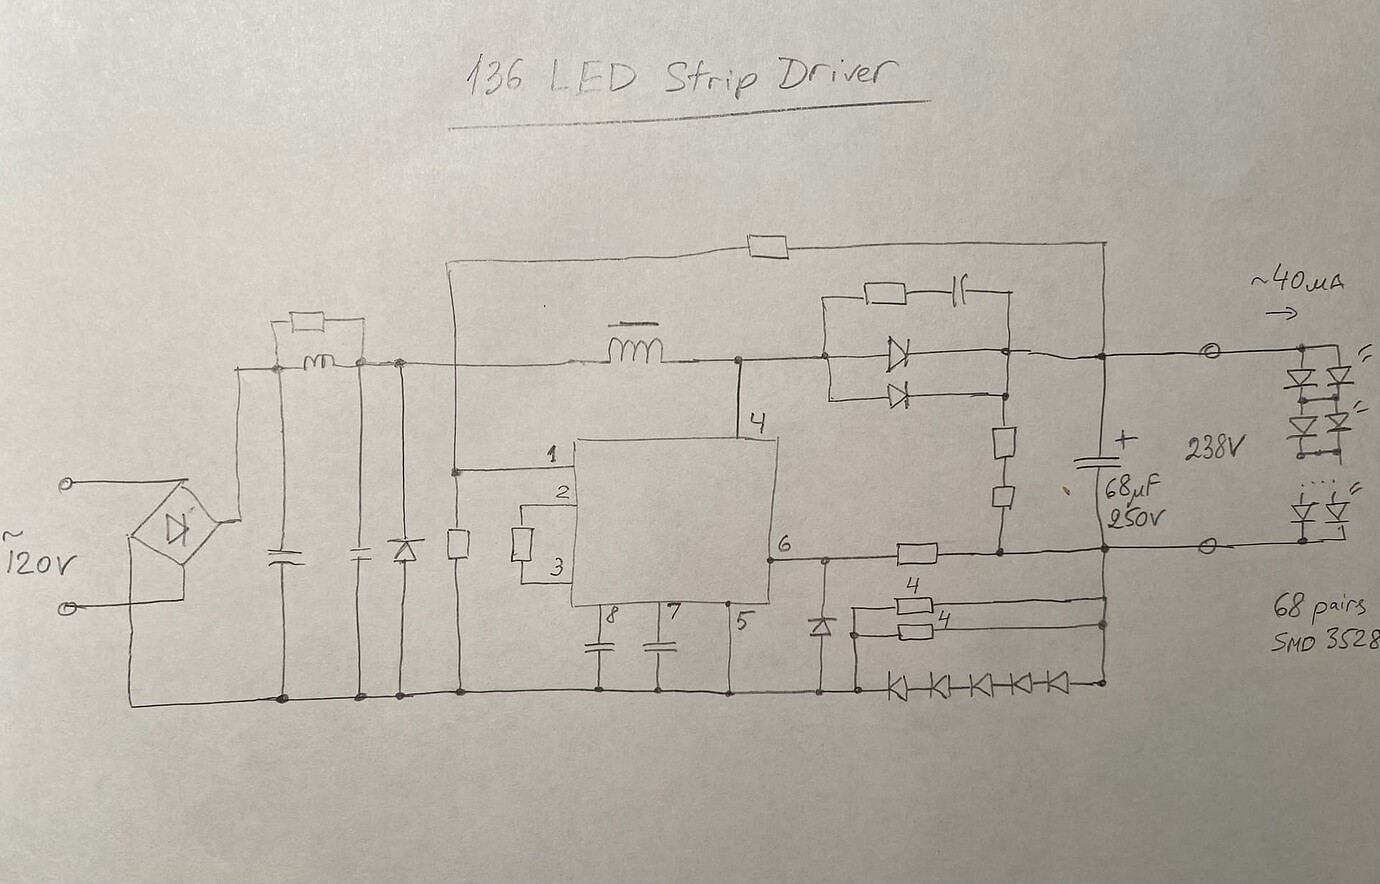 136 LED Strip Driver
~40mA
→
4
+
1
238V
2
68µF
250V
~
120V
6
3
4
4
8
7
5
68 pairs
SMD 3528